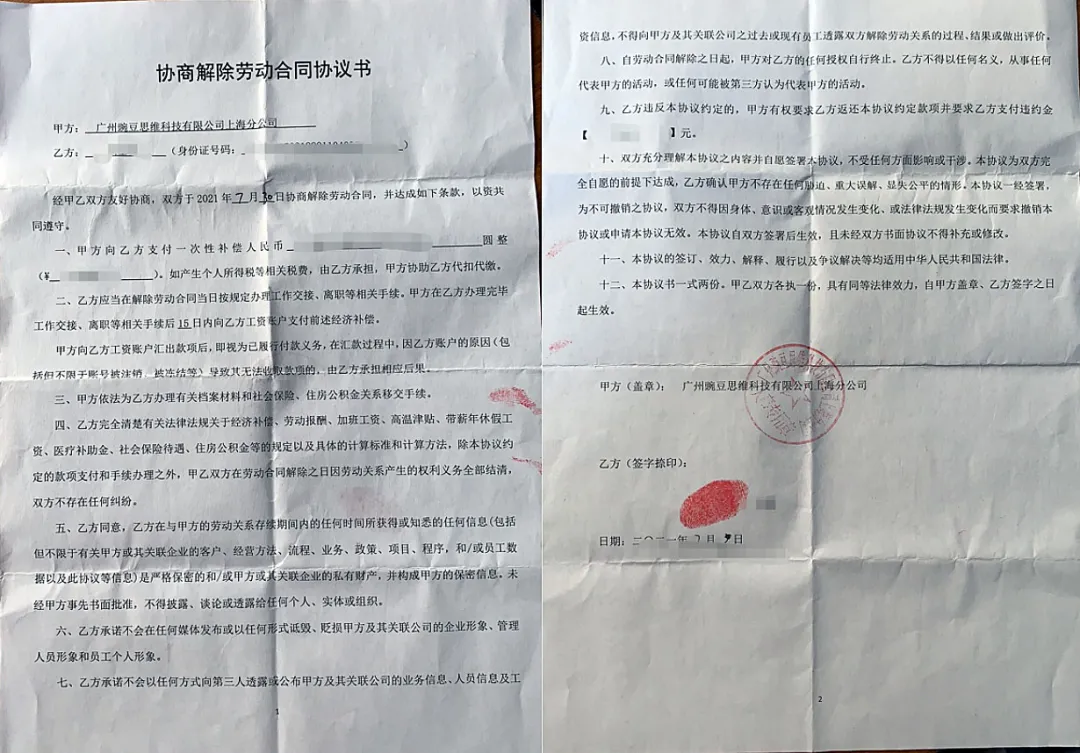 协商解除劳动合同协议书
甲方：广州豌豆思维科技有限公司上海分公司
乙方：（身份证号码：）
经甲乙双方友好协商，双方于2021年7月日协商解除劳动合同，并达成如下条款，以资共
同遵守。
一、甲方向乙方支付一次性补偿人民币圆整
（¥）。如产生个人所得税等相关税费，由乙方承担，甲方协助乙方代扣代缴。
二、乙方应当在解除劳动合同当日按规定办理工作交接、离职等相关手续。甲方在乙方办理完毕
工作交接、离职等相关手续后15日内向乙方工资账户支付前述经济补偿。
甲方向乙方工资账户汇出款项后，即视为已履行付款义务，在汇款过程中，因乙方账户的原因（包
括但不限于账号被注销、被冻结等）导致其无法收取款项的，由乙方承担相应后果。
三、甲方依法为乙方办理有关档案材料和社会保险、住房公积金关系移交手续。
四、乙方完全清楚有关法律规关于经济补偿、劳动报酬、加班工资、高温津贴、带薪年休假工
资、医疗补助金、社会保险待遇、住房公积金等的规定以及具体的计算标准和计算方法，除本协议约
定的款项支付和手续办理之外，甲乙双方在劳动合同解除之日因劳动关系产生的权利义务全部结清，
双方不存在任何纠纷。
五、乙方同意，乙方在与甲方的劳动关系存续期间内的任何时间所获得或知悉的任何信息(包括
但不限于有关甲方或其关联企业的客户、经营方法、流程、业务、政策、项目、程序，和/或员工数
据以及此协议等信息)是严格保密的和/或甲方或其关联企业的私有财产，并构成甲方的保密信息。未
经甲方事先书面批准，不得披露、谈论或透露给任何个人、实体或组织。
六、乙方承诺不会在任何媒体发布或以任何形式诋毁、贬损甲方及其关联公司的企业形象、管理
人员形象和员工个人形象。
七、乙方承诺不会以任何方式向第三人透露或公布甲方及其关联公司的业务信息、人员信息及工
1
资信息，不得向甲方及其关联公司之过去或现有员工透露双方解除劳动关系的过程、结果或做出评价。
八、自劳动合同解除之日起，甲方对乙方的任何授权自行终止。乙方不得以任何名义，从事任何
代表甲方的活动，或任何可能被第三方认为代表甲方的活动。
九、乙方违反本协议约定的，甲方有权要求乙方返还本协议约定款项并要求乙方支付违约金
【】元。
十、双方充分理解本协议之内容并自愿签署本协议，不受任何方面影响或干涉。本协议为双方完
全自愿的前提下达成，乙方确认甲方不存在任何胁迫、重大误解、显失公平的情形。本协议一经签署，
为不可撤销之协议，双方不得因身体、意识或客观情况发生变化、或法律法规发生变化而要求撤销本
协议或申请本协议无效。本协议自双方签署后生效，且未经双方书面协议不得补充或修改。
十一、本协议的签订、效力、解释、履行以及争议解决等均适用中华人民共和国法律。
十二、本协议书一式两份。甲乙双方各执一份，具有同等法律效力，自甲方盖章、乙方签字之日
起生效。
甲方（盖章）：广州豌豆思维科技有限公司上海分公司
乙方（签字捺印）：
日期：二〇二一年7月日
2